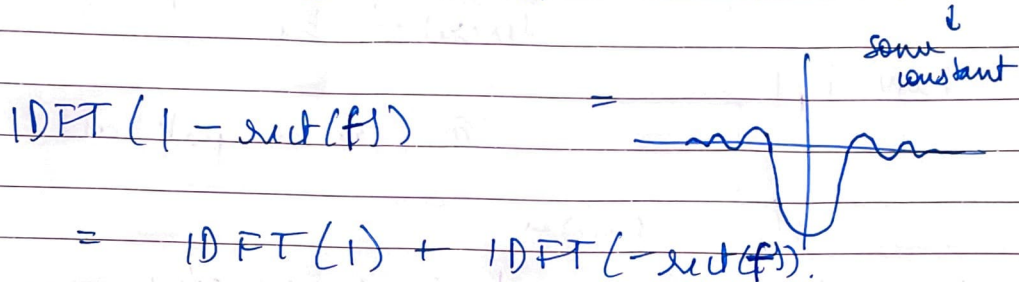 ↓
some
constant
IDFT (1 - rect(f)) =
= IDFT(1) + IDFT(-rect(f)).